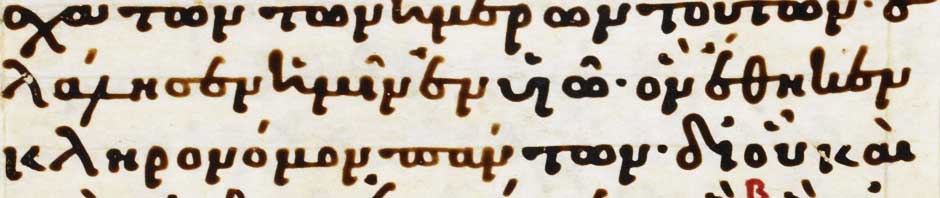 χάτων τῶν ἡμερῶν τούτων· ἐ
λάλησεν ἡμῖν ἐν υἱῶ· ὃν ἔθηκεν
κληρονόμον πάντων· δι' οὗ καὶ